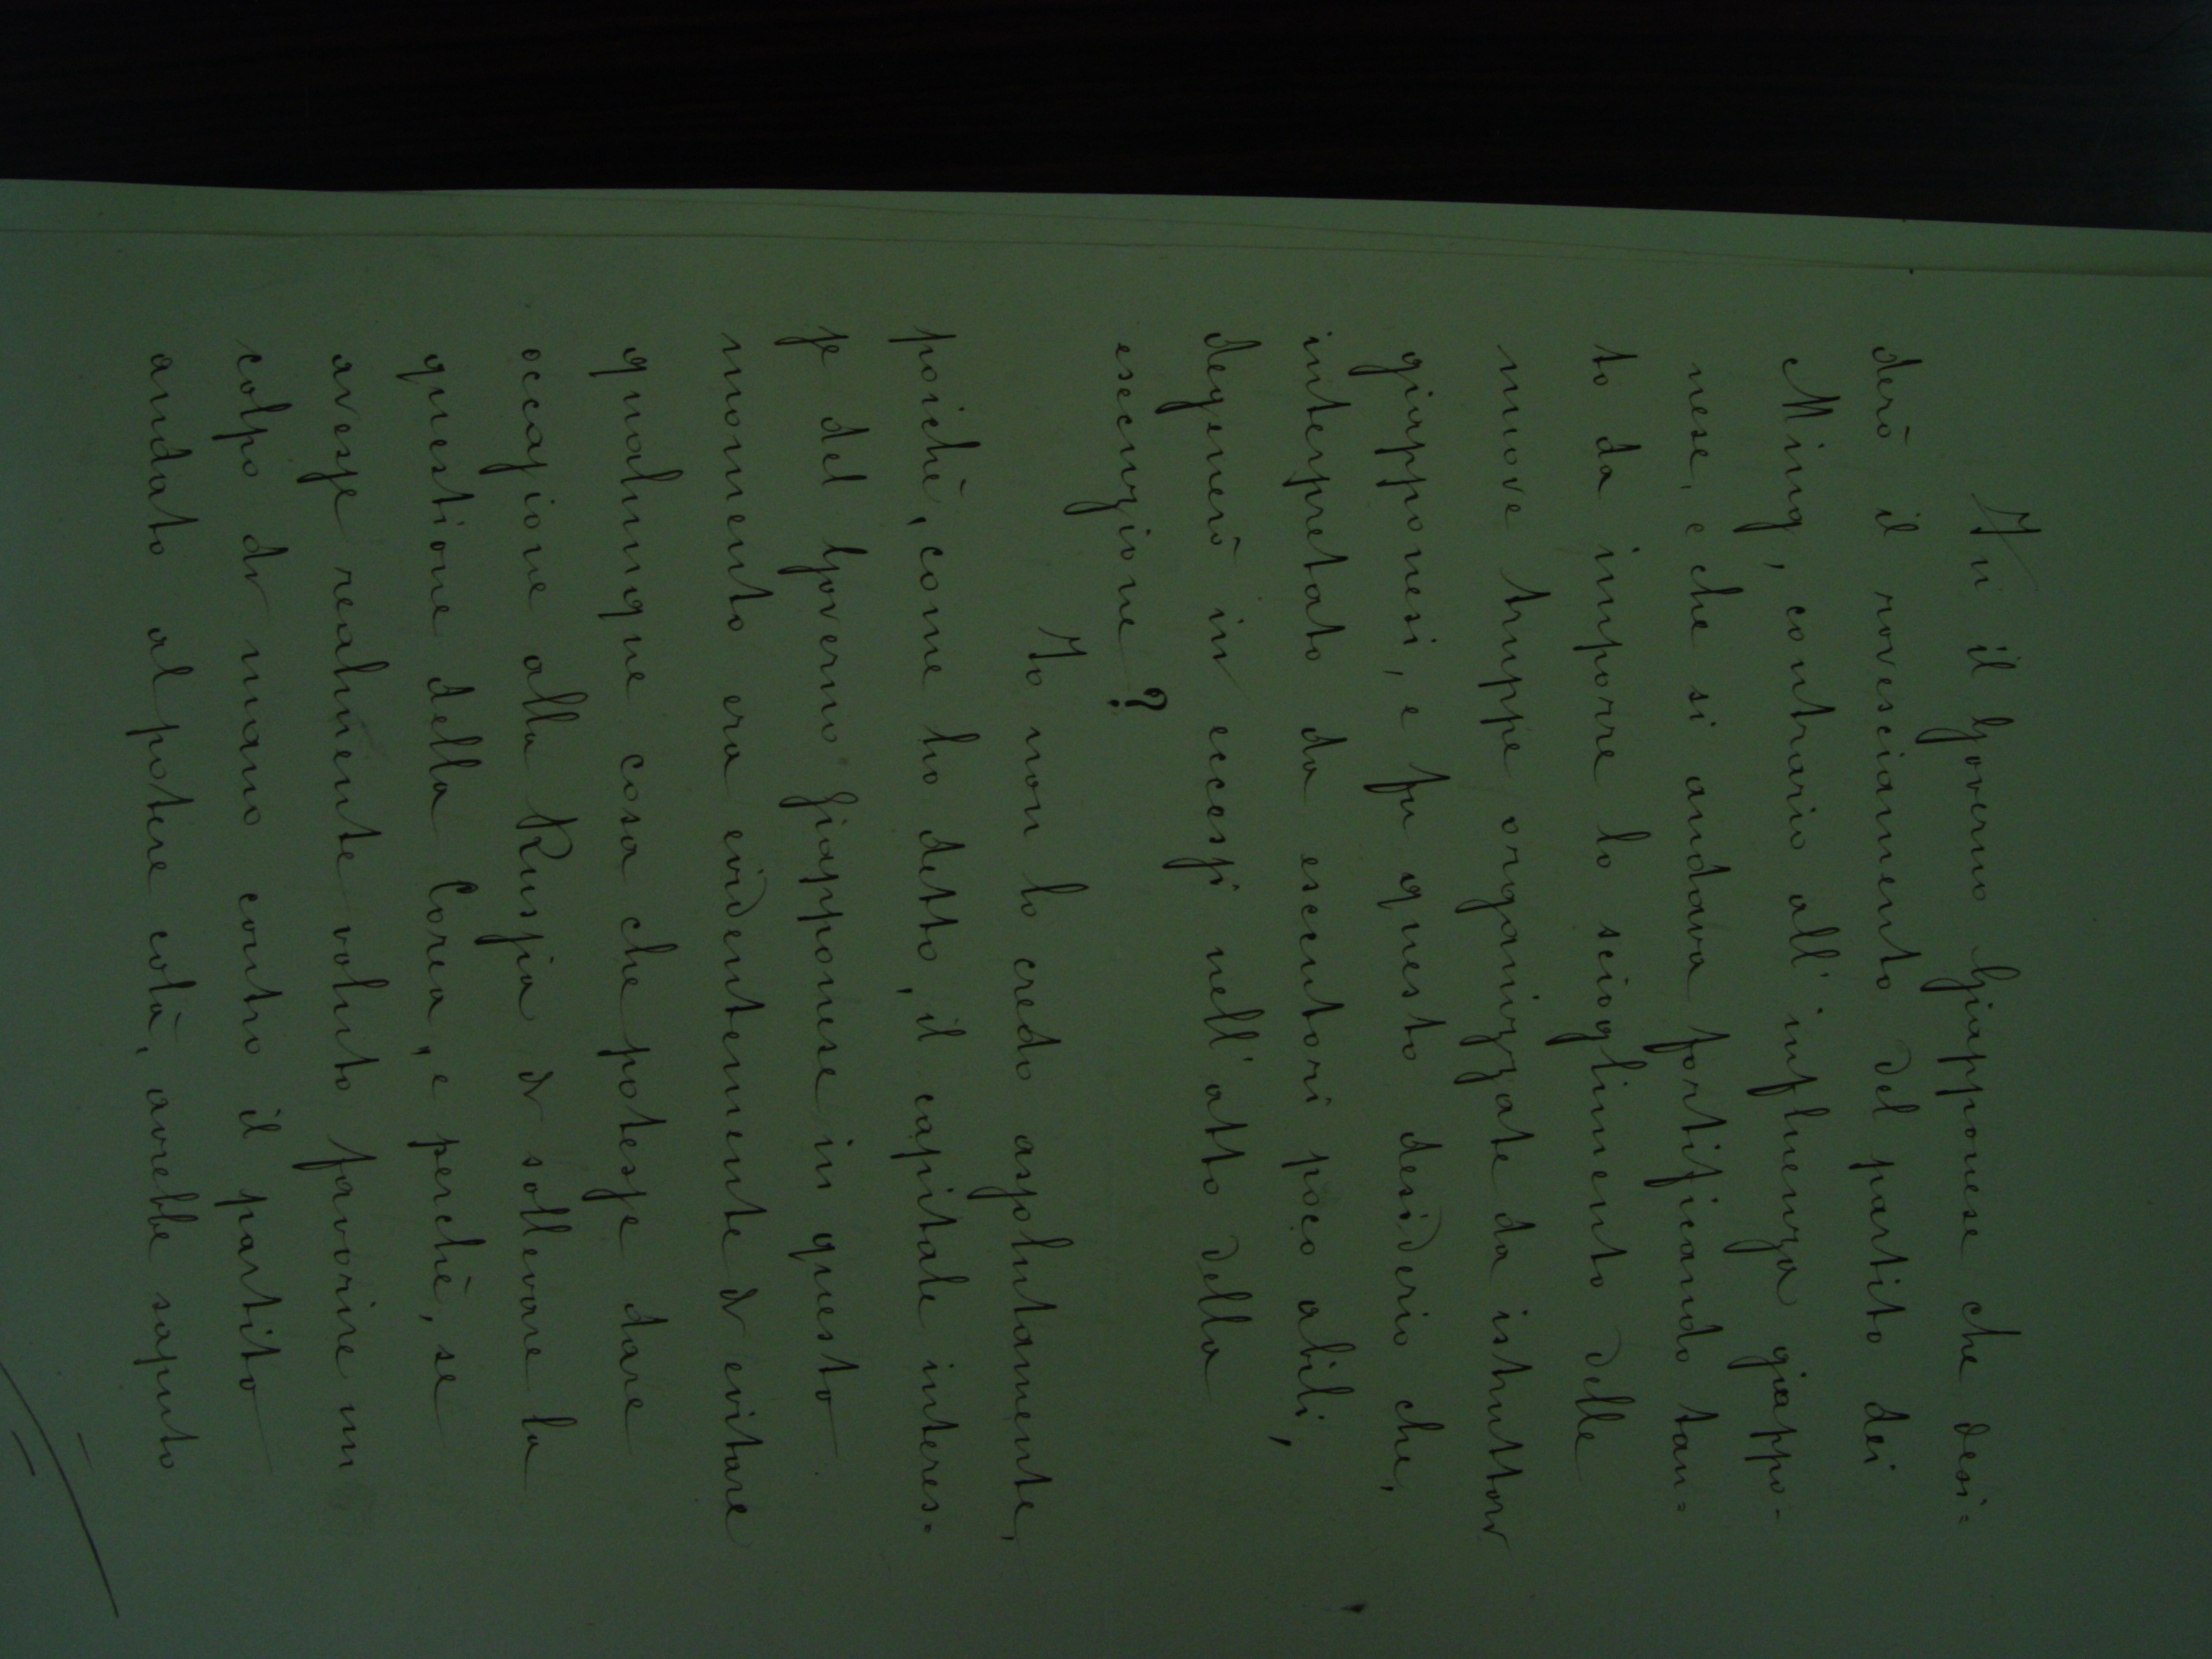 Fu il Governo Giapponese che desi=
derò il rovesciamento del partito dei
Ming, contrario all'influenza giappo-
nese, e che si andava fortificando tan=
to da imporre lo scioglimento delle
nuove truppe organizzate da istruttori
giapponesi, e fu questo desiderio che,
interpretato da esecutori poco abili,
degenerò in eccessi nell'atto della
esecuzione?
Io non lo credo assolutamente,
poichè, come ho detto, il capitale interes=
se del Governo Giapponese in questo
momento era evidentemente di evitare
qualunque cosa che potesse dare
occasione alla Russia di sollevare la
questione della Corea, e perchè, se
avesse realmente voluto favorire un
colpo di mano contro il partito
andato al potere colà, avrebbe saputo